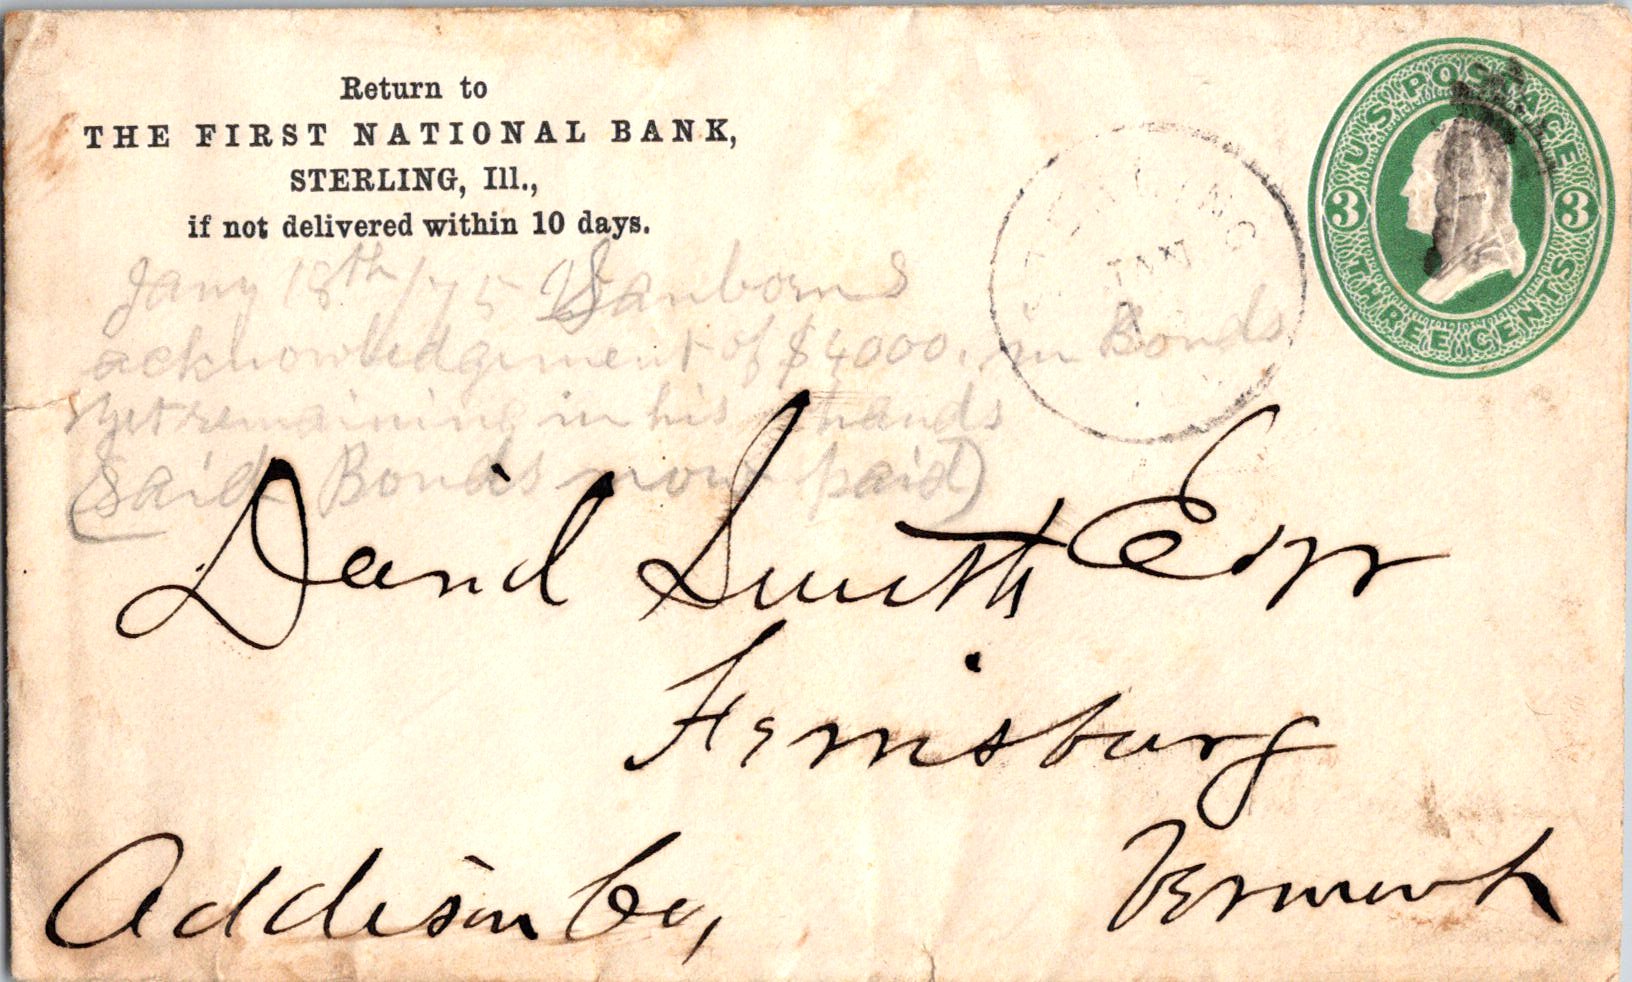 Return to
THE FIRST NATIONAL BANK,
STERLING, Ill.,
if not delivered within 10 days.
U.S. POSTAGE
3 3
THREE CENTS
STERLING
JAN
Jany 18th/75 Sanborns
acknowledgement of $4000. in Bonds
yet remaining in his hands
(Said Bonds now paid)
David Smith Esqr
Ferrisburg
Addison Co, Vermont